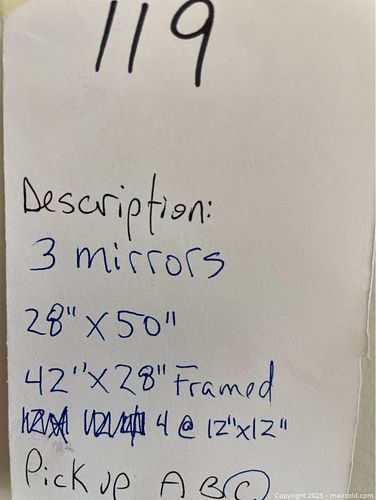 119
Description:
3 mirrors
28" X 50"
42" X 28" Framed
4 @ 12"x12"
Pick up A B C
Copyright 2025 - maxsold.com